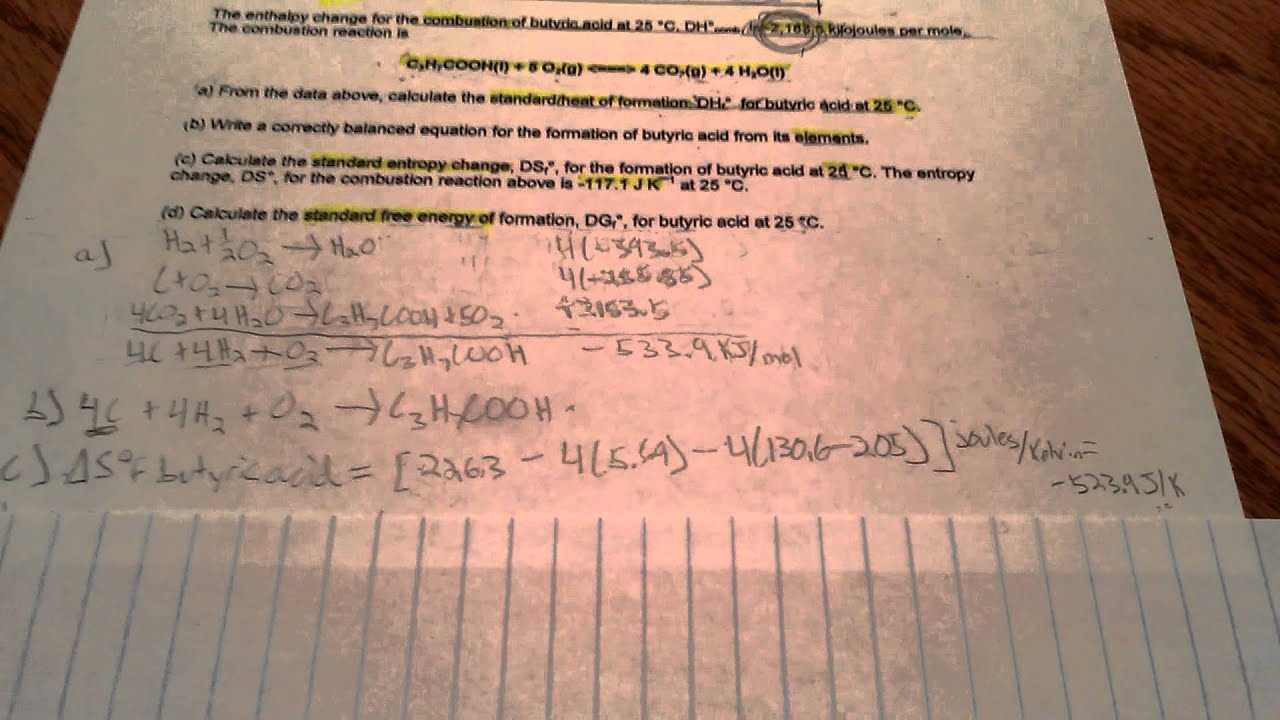 The enthalpy change for the combustion of butyric acid at 25 °C, DH°comb, is -2,183.5 kilojoules per mole.
The combustion reaction is
C₃H₇COOH(l) + 5 O₂(g) <====> 4 CO₂(g) + 4 H₂O(l)
(a) From the data above, calculate the standard heat of formation, DHf°, for butyric acid at 25 °C.
(b) Write a correctly balanced equation for the formation of butyric acid from its elements.
(c) Calculate the standard entropy change, DSf°, for the formation of butyric acid at 25 °C. The entropy
change, DS°, for the combustion reaction above is -117.1 J K⁻¹ at 25 °C.
(d) Calculate the standard free energy of formation, DGf°, for butyric acid at 25 °C.
a) H₂ + ½O₂ → H₂O 4(-393.5)
C + O₂ → CO₂ 4(-285.85)
4CO₂ + 4H₂O → C₃H₇COOH + 5O₂ +2183.5
4C + 4H₂ + O₂ → C₃H₇COOH -533.9 KJ/mol
b) 4C + 4H₂ + O₂ → C₃H₇COOH
c) ΔS°f butyric acid = [226.3 - 4(5.69) - 4(130.6 - 205)] joules/Kelvin =
-523.9 J/K